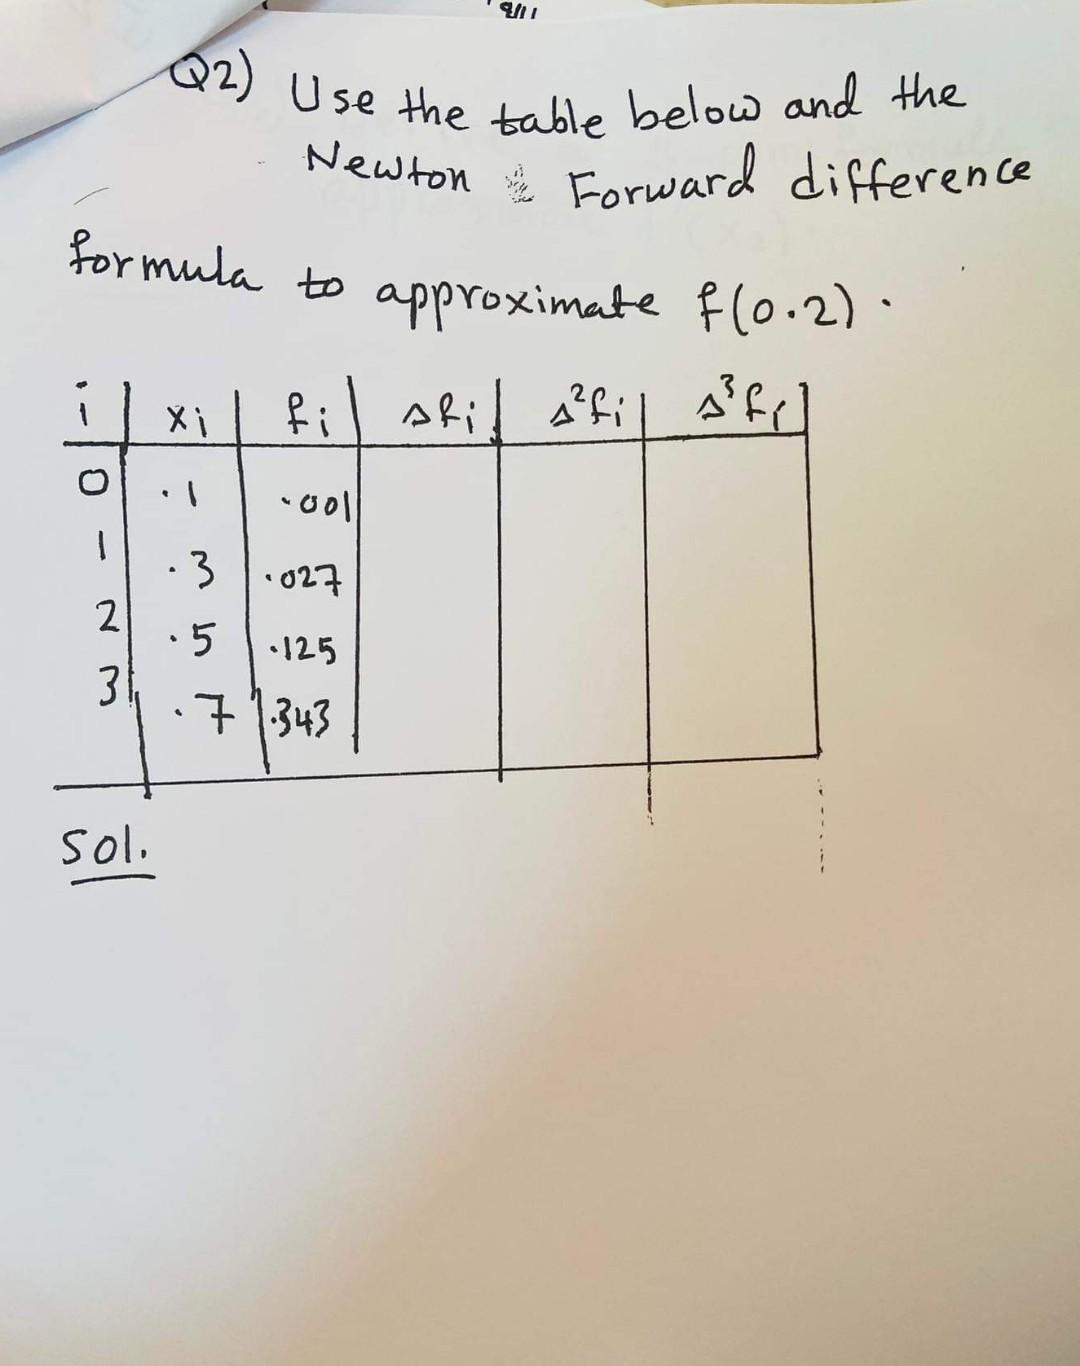 Q2) Use the table below and the
Newton Forward difference
formula to approximate f(0.2).
i xi fi Δfi Δ²fi Δ³fi
0 .1 .001
1 .3 .027
2 .5 .125
3 .7 .343
Sol.